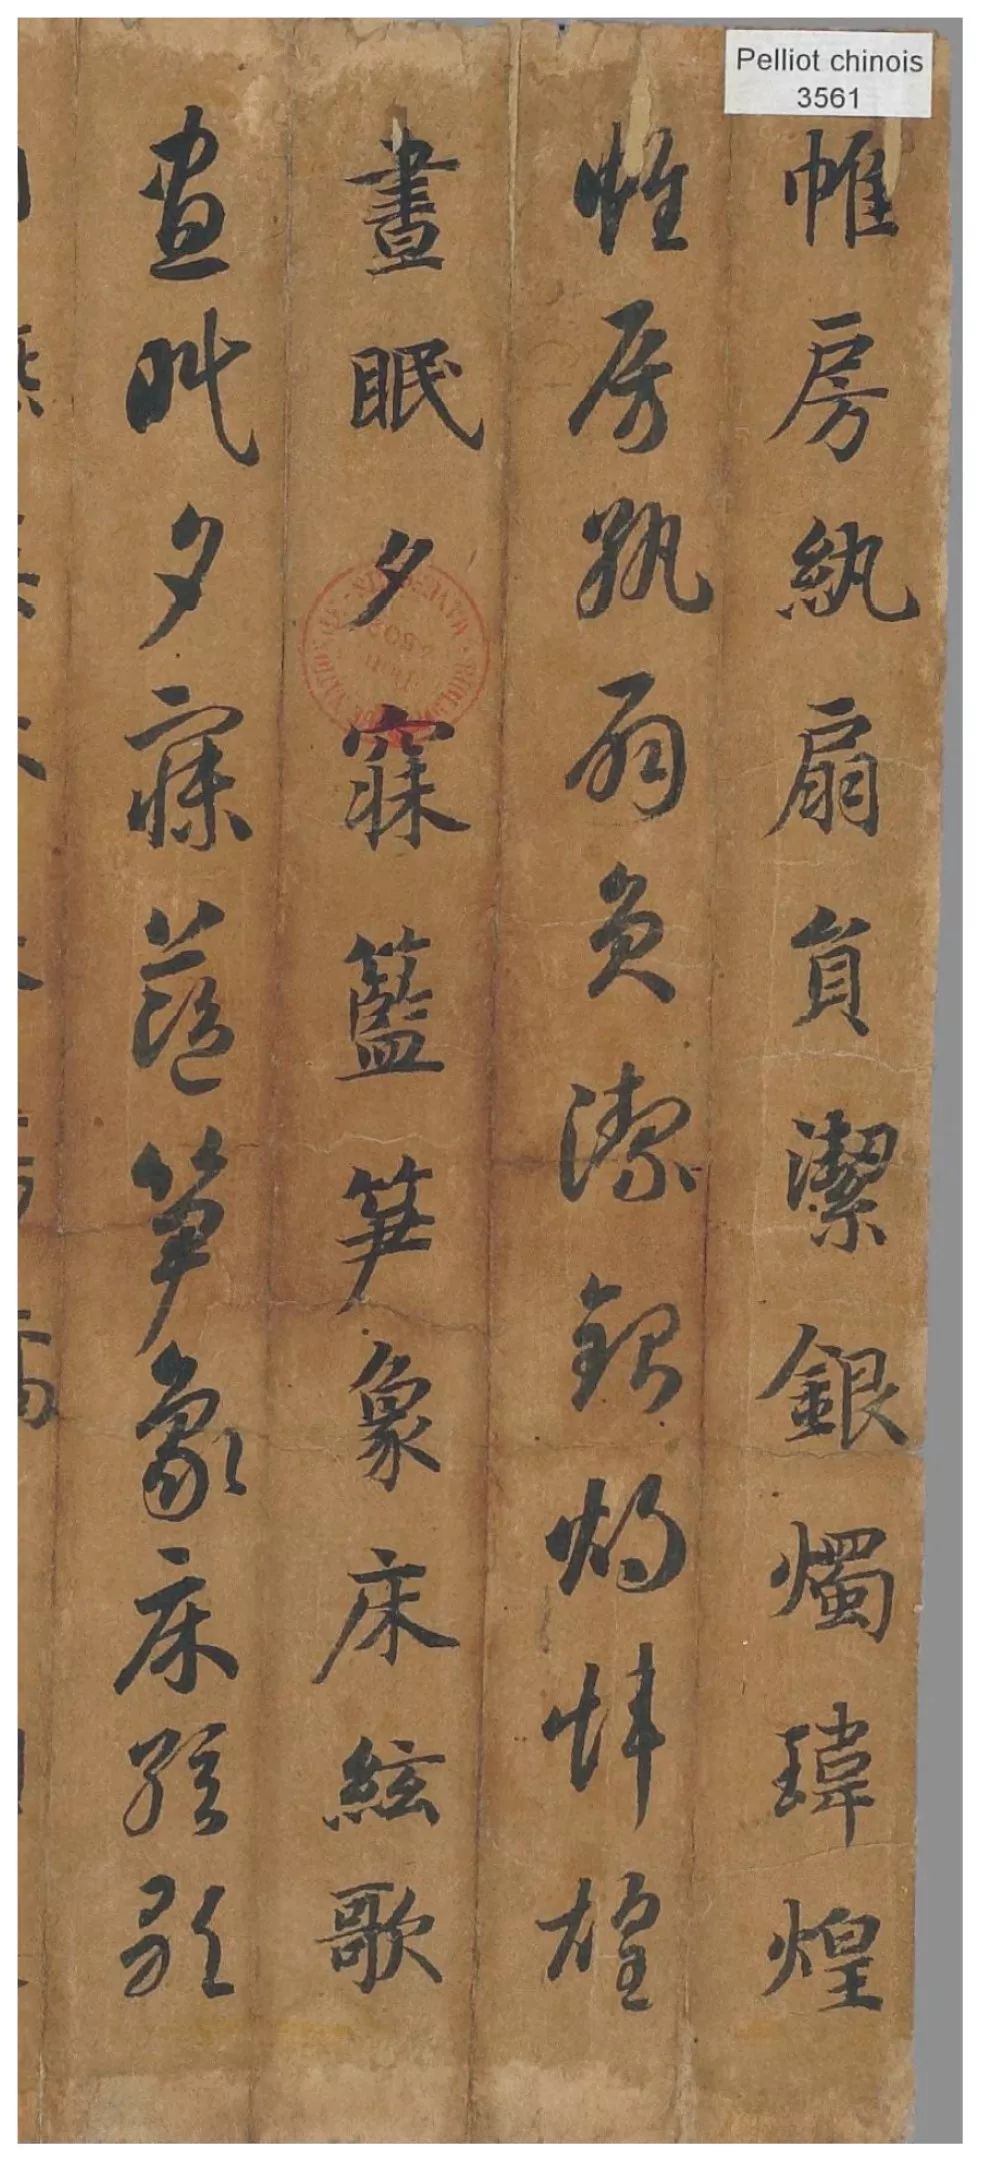 Pelliot chinois
3561
帷房紈扇員潔銀燭瑋煌
帷房紈扇員潔銀燭煒煌
晝眠夕寐籃笋象床絃歌
晝眠夕寐藍笋象床絃歌